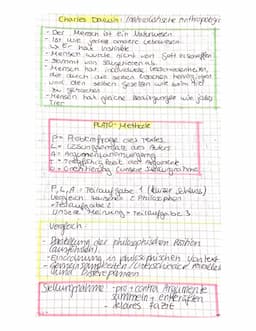 Charles Darwin: (materialistische Anthropologie)
- Der Mensch ist ein Naturwesen
- Ist wie jedes andere Lebewesen
↳ Er hat Instinkte
- Menschen wurde nicht von Gott erschaffen
- Stammt von Säugetieren ab
- Menschen hat individuelle
die durch die selben
und den selben Gesetzen wie beim Tier
zu
- Menschen hat gleiche Bedingungen wie jedes
Tier
PLATO-Methode
P = Problemfrage des Textes
L = Lösungsansatz des Autors
A = Argumentationsgang
T = der Argumente
O = Orientierung (unsere Stellungnahme)
P, L, A = Teilaufgabe 1 (kurzer Schluss)
Vergleich zwischen 2 Philosophen
= Teilaufgabe 2
Unsere Meinung = Teilaufgabe 3
Vergleich:
- Darstellung der philosophischen Position
(ausführlich)
- Einordnung in philosophischen Kontext
- Gemeinsamkeiten/Unterschiede
und
Stellungnahme: - pro + contra Argumente
sammeln + entkräften
- klares Fazit